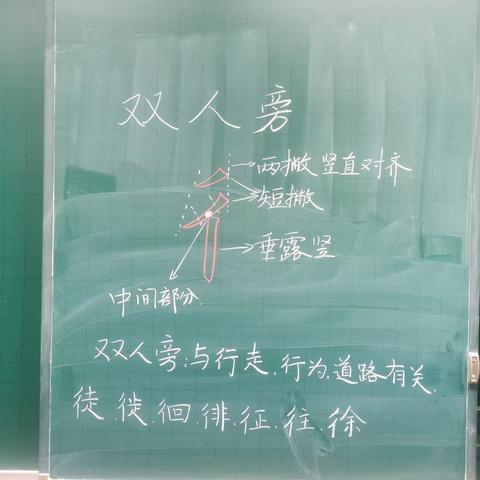 双人旁
两撇竖直对齐
短撇
垂露竖
中间部分.
双人旁:与行走、行为、道路有关.
徒、徙、徊、徘、征、往、徐